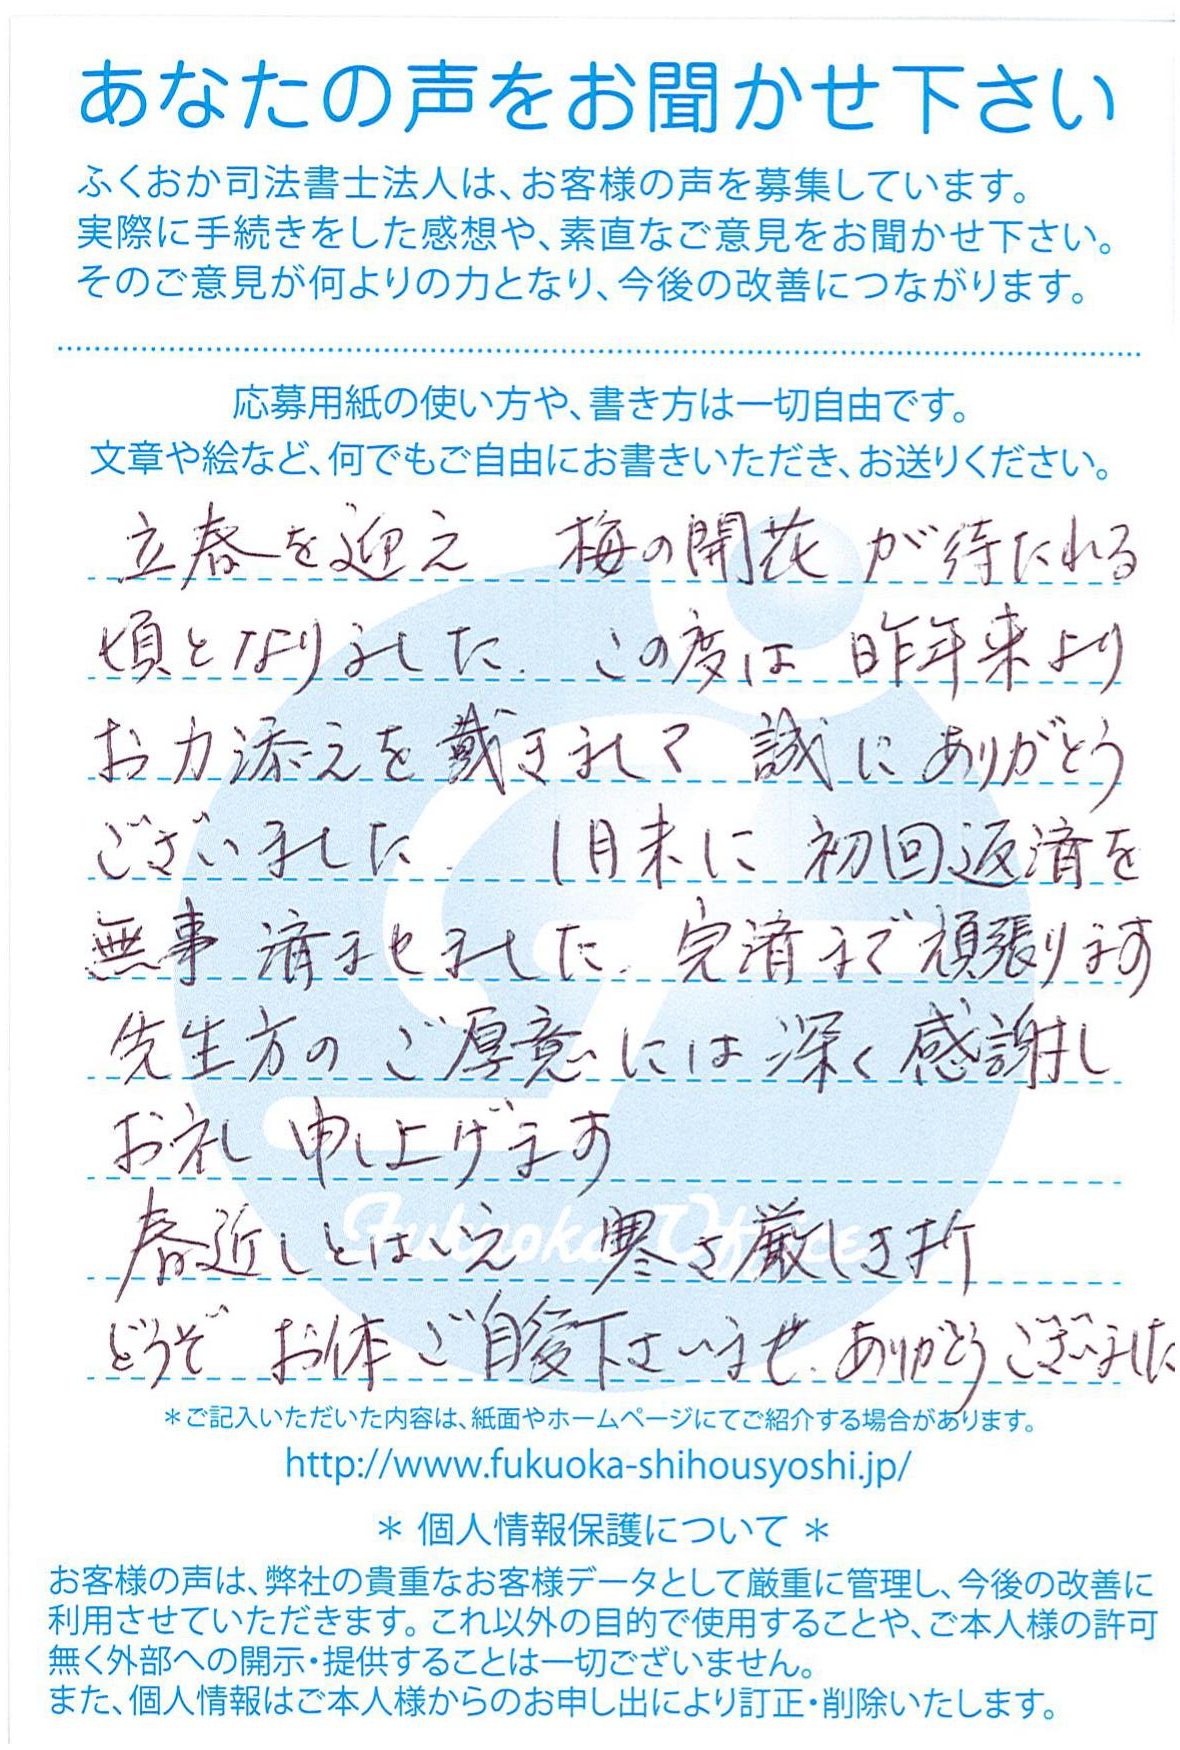 あなたの声をお聞かせ下さい
ふくおか司法書士法人は、お客様の声を募集しています。
実際に手続きをした感想や、素直なご意見をお聞かせ下さい。
そのご意見が何よりの力となり、今後の改善につながります。
応募用紙の使い方や、書き方は一切自由です。
文章や絵など、何でもご自由にお書きいただき、お送りください。
立春を迎え 梅の開花が待たれる
頃となりました。この度は昨年来より
お力添えを戴きまして誠にありがとう
ございました。1月末に初回返済を
無事済ませました。完済まで頑張ります
先生方のご厚意には深く感謝し
お礼申し上げます
Fukuoka Office
春近しとはいえ 寒さ厳しき折
どうぞ お体ご自愛下さいませ。ありがとうございました
＊ご記入いただいた内容は、紙面やホームページにてご紹介する場合があります。
http://www.fukuoka-shihousyoshi.jp/
＊ 個人情報保護について ＊
お客様の声は、弊社の貴重なお客様データとして厳重に管理し、今後の改善に
利用させていただきます。これ以外の目的で使用することや、ご本人様の許可
無く外部への開示・提供することは一切ございません。
また、個人情報はご本人様からのお申し出により訂正・削除いたします。